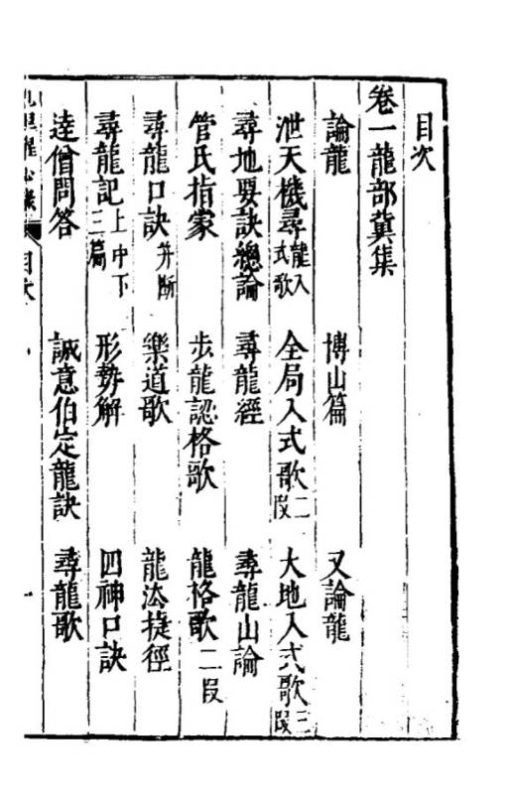 目次
卷一龍部冀集
論龍 博山篇 又論龍
泄天機尋龍入式歌 全局入式歌二段 大地入式歌三段
尋地要訣總論 尋龍經 尋龍山論
管氏指蒙 步龍認格歌 龍格歌二段
尋龍口訣并斷 樂道歌 龍法捷徑
尋龍記上中下三篇 形勢解 四神口訣
逵僧問答 誠意伯定龍訣 尋龍歌
目次